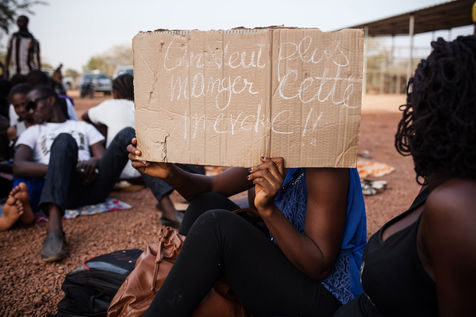 On veut plus
manger Cette
merde !!